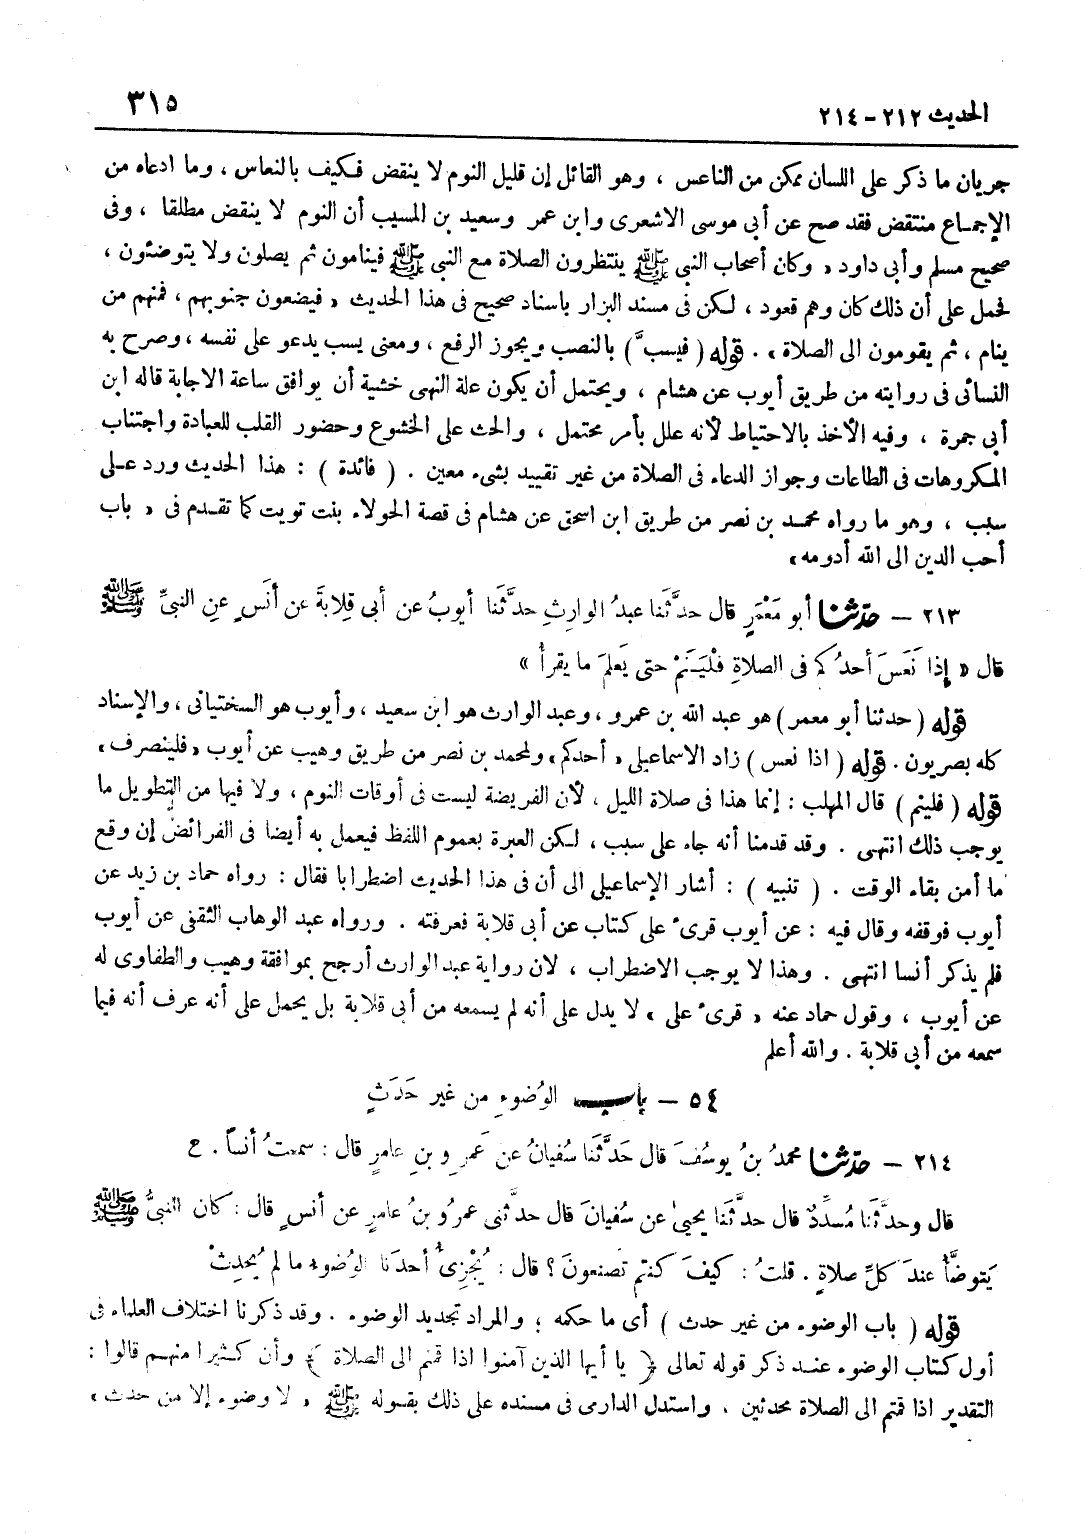 الحديث ٢١٢ - ٢١٤
٣١٥
جريان ما ذكر على اللسان ممكن من الناعس ، وهو القائل إن قليل النوم لا ينقض فكيف بالنعاس ، وما ادعاه من
الإجماع منتقض فقد صح عن أبى موسى الاشعرى وابن عمر وسعيد بن المسيب أن النوم لا ينقض مطلقا ، وفى
صحيح مسلم وأبى داود « وكان أصحاب النبى ﷺ ينتظرون الصلاة مع النبى ﷺ فينامون ثم يصلون ولا يتوضئون ،
فحمل على أن ذلك كان وهم قعود ، لكن فى مسند البزار باسناد صحيح فى هذا الحديث « فيضعون جنوبهم ، فمنهم من
ينام ، ثم يقومون الى الصلاة » . قوله ( فيسبَّ ) بالنصب ويجوز الرفع ، ومعنى يسب يدعو على نفسه ، وصرح به
النسائى فى روايته من طريق أيوب عن هشام ، ويحتمل أن يكون علة النهى خشية أن يوافق ساعة الاجابة قاله ابن
أبى جمرة ، وفيه الأخذ بالاحتياط لأنه علل بأمر محتمل ، والحث على الخشوع وحضور القلب للعبادة واجتناب
المكروهات فى الطاعات وجواز الدعاء فى الصلاة من غير تقييد بشىء معين . ( فائدة ) : هذا الحديث ورد على
سبب ، وهو ما رواه محمد بن نصر من طريق ابن اسحق عن هشام فى قصة الحولاء بنت تويت كما تقدم فى « باب
أحب الدين الى الله أدومه »
٢١٣ - حدّثنا أبو مَعْمَرٍ قال حدَّثَنا عبدُ الوارِثِ حدَّثَنا أيوبُ عن أبى قِلابةَ عن أنَسٍ عنِ النبىِّ ﷺ
قال « إِذا نَعَسَ أحدُكم فى الصلاةِ فلْيَنَمْ حتى يَعلمَ ما يقرأُ »
قوله ( حدثنا أبو معمر ) هو عبد الله بن عمرو ، وعبد الوارث هو ابن سعيد ، وأيوب هو السختيانى ، والإسناد
كله بصريون . قوله ( اذا نعس ) زاد الاسماعيلى « أحدكم » ولمحمد بن نصر من طريق وهيب عن أيوب « فلينصرف »
قوله ( فلينم ) قال المهلب : إنما هذا فى صلاة الليل ، لأن الفريضة ليست فى أوقات النوم ، ولا فيها من التطويل ما
يوجب ذلك انتهى . وقد قدمنا أنه جاء على سبب ، لكن العبرة بعموم اللفظ فيعمل به أيضا فى الفرائض إن وقع
ما أمن بقاء الوقت . ( تنبيه ) : أشار الإسماعيلى الى أن فى هذا الحديث اضطرابا فقال : رواه حماد بن زيد عن
أيوب فوقفه وقال فيه : عن أيوب قرىء على كتاب عن أبى قلابة فعرفته . ورواه عبد الوهاب الثقفى عن أيوب
فلم يذكر أنسا انتهى . وهذا لا يوجب الاضطراب ، لان رواية عبد الوارث أرجح بموافقة وهيب والطفاوى له
عن أيوب ، وقول حماد عنه « قرىء على » لا يدل على أنه لم يسمعه من أبى قلابة بل يحمل على أنه عرف أنه فيما
سمعه من أبى قلابة . والله أعلم
٥٤ - باب الوُضوءِ من غير حَدَثٍ
٢١٤ - حدّثنا محمدُ بنُ يوسُفَ قال حَدَّثَنا سُفيانُ عن عَمرِو بنِ عامرٍ قال : سمعتُ أنساً . ح
قال وحدَّثَنا مُسدَّدٌ قال حدَّثَنا يحيىٰ عن سُفيانَ قال حدثَنى عمرُو بنُ عامرٍ عن أنسٍ قال : كان النبىُّ ﷺ
يَتوضَّأُ عندَ كلِّ صلاةٍ . قلتُ : كيفَ كنتم تصنعونَ ؟ قال : يُجْزِئُ أحدَنا الوُضوءُ ما لم يُحدِثْ
قوله ( باب الوضوء من غير حدث ) أى ما حكمه ؛ والمراد تجديد الوضوء . وقد ذكرنا اختلاف العلماء فى
أول كتاب الوضوء عند ذكر قوله تعالى ﴿ يا أيها الذين آمنوا اذا قمتم الى الصلاة ﴾ وأن كثيرا منهم قالوا :
التقدير اذا قمتم الى الصلاة محدثين . واستدل الدارمى فى مسنده على ذلك بقوله ﷺ « لا وضوء إلا من حدث »